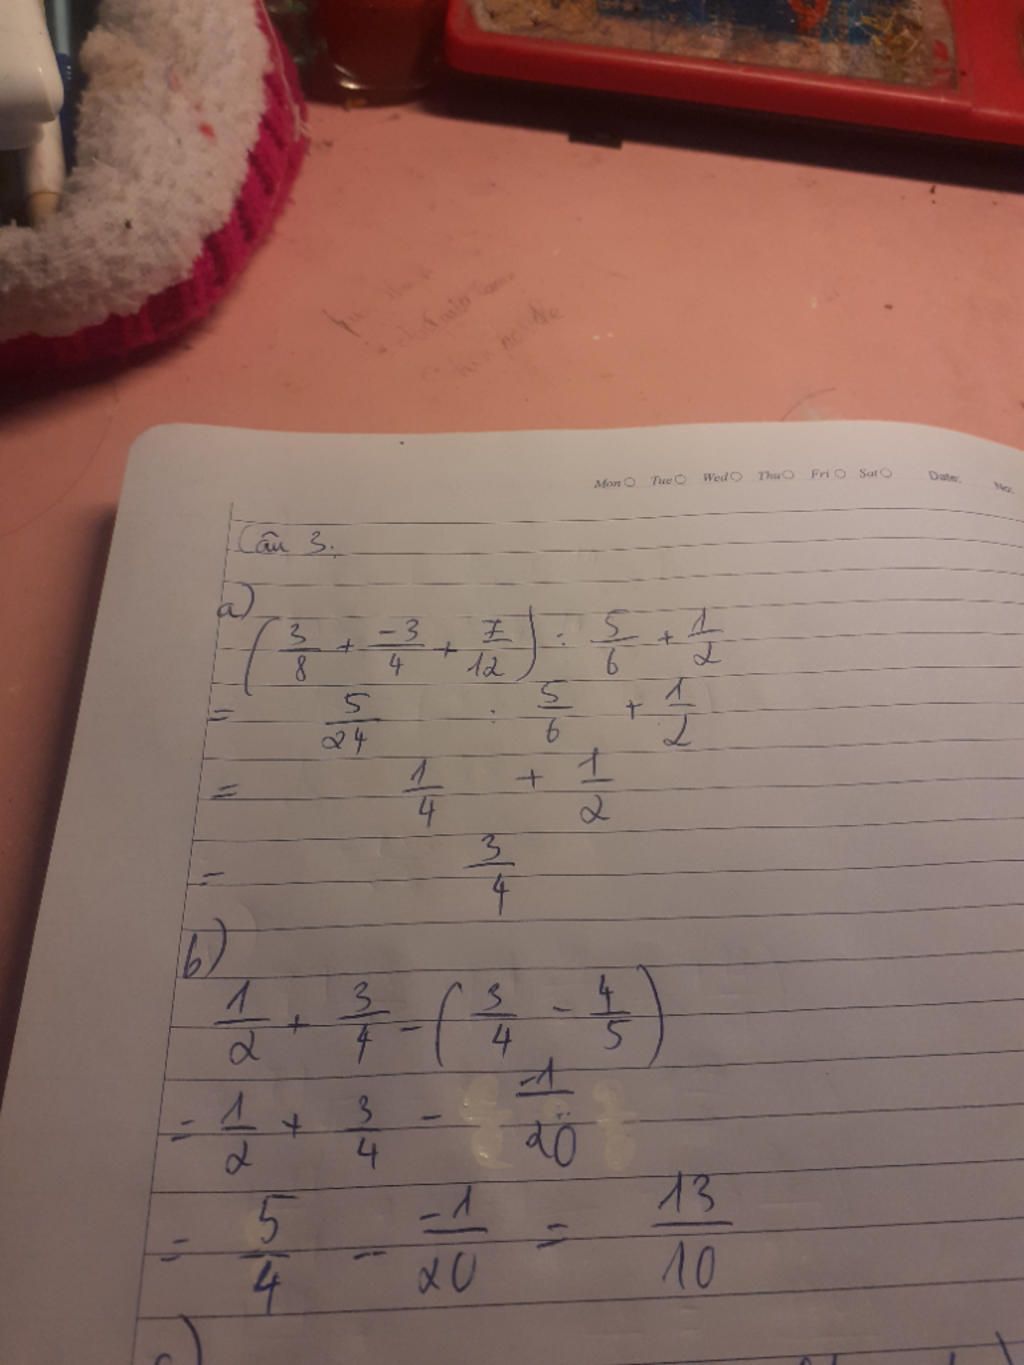 Mon Tue Wed Thu Fri Sat Date: No:
Câu 3.
a)
(3/8 + -3/4 + 7/12) : 5/6 + 1/2
= 5/24 : 5/6 + 1/2
= 1/4 + 1/2
= 3/4
b)
1/2 + 3/4 - (3/4 - 4/5)
= 1/2 + 3/4 - -1/20
= 5/4 - -1/20 = 13/10
c)